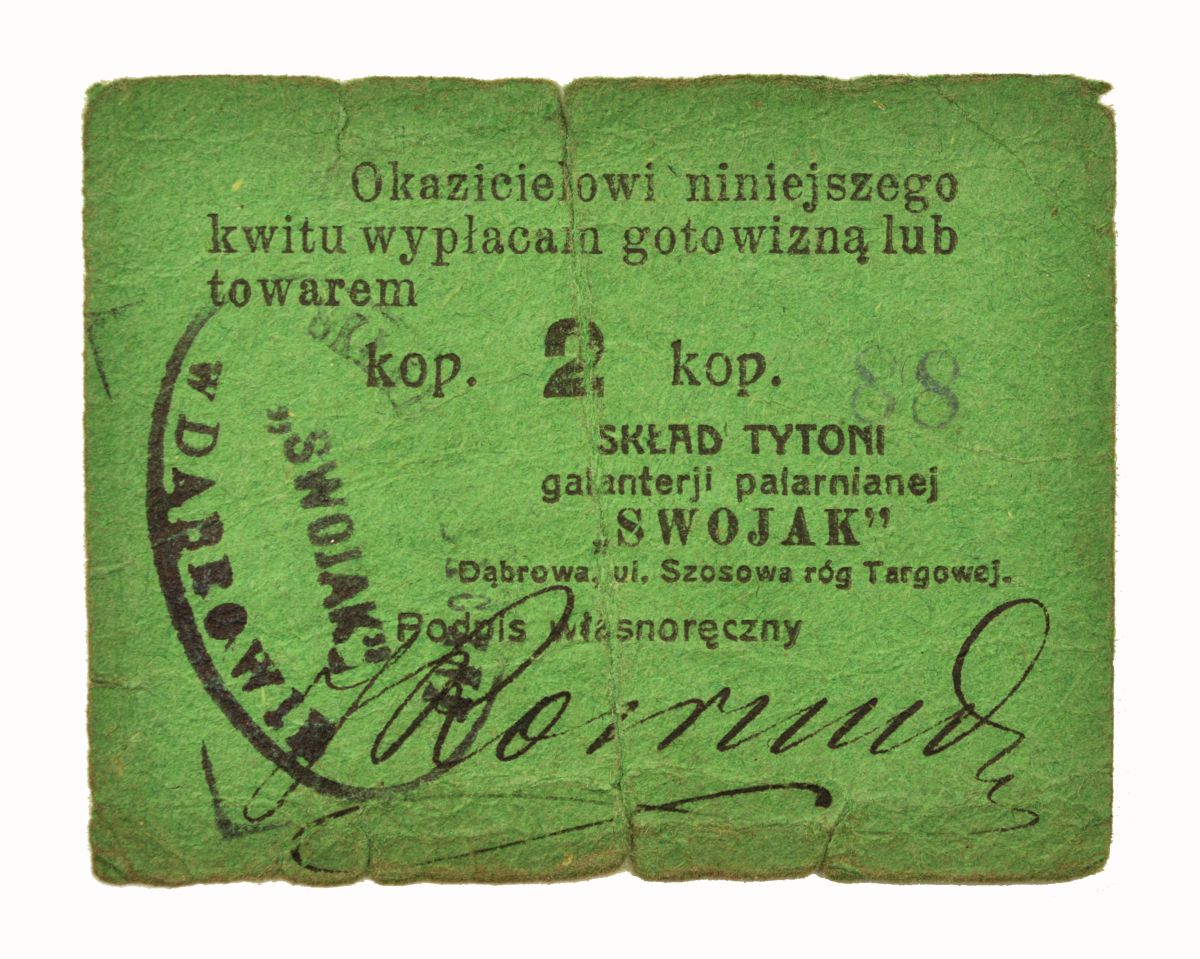 Okazicielowi niniejszego
kwitu wypłacam gotowizną lub
towarem
kop. 2 kop.
88
SKŁAD TYTONI
galanterji palarnianej
„SWOJAK”
Dąbrowa, ul. Szosowa róg Targowej.
Podpis własnoręczny
„SWOJAK”